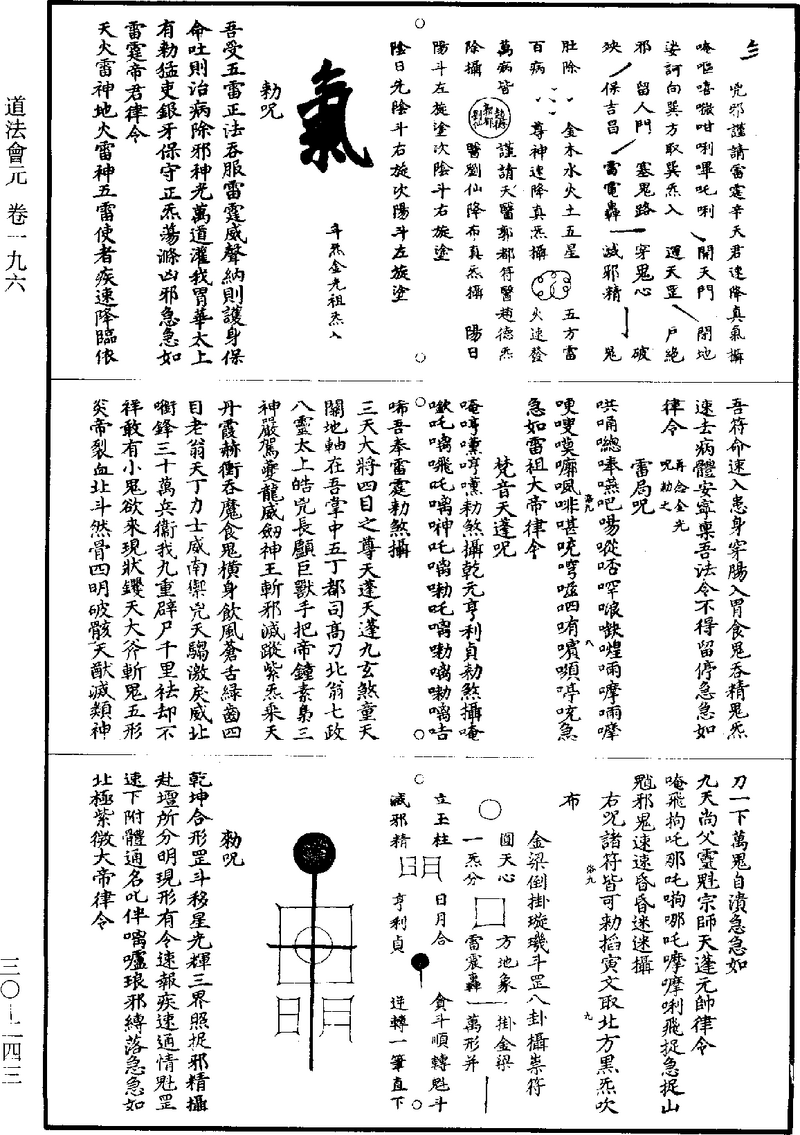 兇邪謹請雷霆辛天君速降真氣攝
唵嘔嘻嗷呬唎嗶吒唎　開天門　閉地
娄訶向巽方取巽炁入　運天罡　戶絕
邪　留人門　塞鬼路　穿鬼心　破
殃　保吉昌　雷電轟　滅邪精　鬼
肚除　金木水火土五星　五方雷
百病　尊神速降真炁攝　火速登
萬病皆　謹請天醫郭都符醫趙德炁
除攝　醫劉仙降布真炁攝　陽日
陽斗左旋塗次陰斗右旋塗
陰日先陰斗右旋次陽斗左旋塗
氣
斗炁金光祖炁入
勑呪
吾受五雷正法吞服雷霆威聲納則護身保
命吐則治病除邪神光萬道灌我胃華太上
有勑猛吏銀牙保守正炁蕩滌凶邪急急如
雷霆帝君律令
天火雷神地火雷神五雷使者疾速降臨依
吾符命速入患身穿腸入胃食鬼吞精鬼炁
速去病體安寧稟吾法令不得留停急急如
律令　再念金光呪勑之
雷局呪
急如雷祖大帝律令
梵音天蓬呪
唵哼𡃤哼𡃤勑煞攝乾元亨利貞勑煞攝唵
唏吾奉雷霆勑煞攝
三天大將四目之尊天蓬天蓬九玄煞童天
關地軸在吾掌中五丁都司高刀北翁七政
八靈太上皓兇長顱巨獸手把帝鐘素梟三
神嚴駕夔龍威劔神王斬邪滅蹤紫炁乘天
丹霞赫衝吞魔食鬼橫身飲風蒼舌綠齒四
目老翁天丁力士威南禦兇天騶激戾威北
銜鋒三十萬兵衞我九重辟尸千里祛却不
祥敢有小鬼欲來現狀钁天大斧斬鬼五形
炎帝裂血北斗然骨四明破骸天猷滅類神
刀一下萬鬼自潰急急如
九天尚父靈魁宗師天蓬元帥律令
唵飛拘吒那吒啕哪吒摩摩唎飛捉急捉山
魈邪鬼速速昏昏迷迷攝
右呪諸符皆可勑搯寅文取北方黑炁吹
布
金梁倒掛璇璣斗罡八卦攝祟符
圓天心　方地象　掛金梁
一炁分　雷震轟　萬形并
立玉柱　日月合　貪斗順轉魁斗
滅邪精　亨利貞　逆轉一筆直下
勑呪
乾坤合形罡斗移星光輝三界照捉邪精攝
赴壇所分明現形有令速報疾速通情魁罡
速下附體通名叱伴嚆嚧琅邪縛落急急如
北極紫微大帝律令
道法會元　卷一九六
三〇—二四三